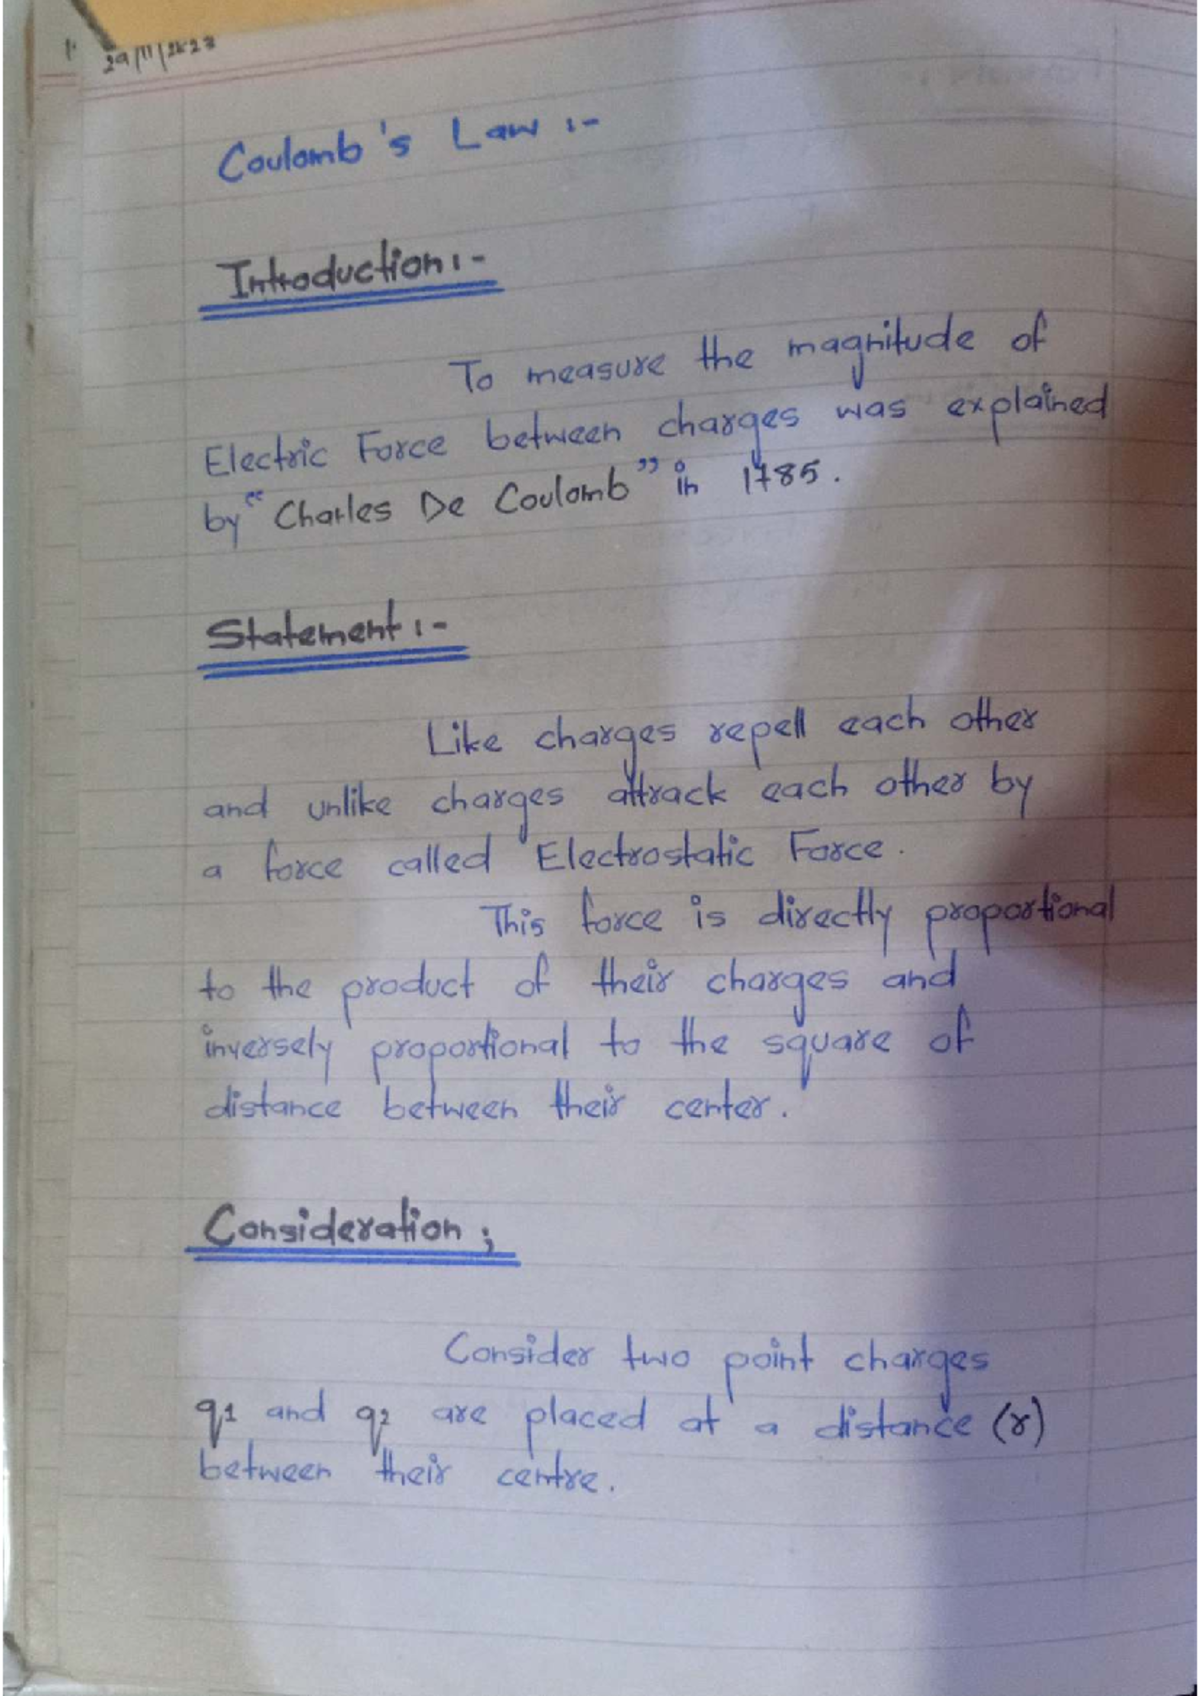 29/11/2k23
Coulomb's Law :-
Introduction :-
To measure the magnitude of
Electric Force between charges was explained
by "Charles De Coulomb" in 1785.
Statement :-
Like charges repell each other
and unlike charges attrack each other by
a force called Electrostatic Force.
This force is directly proportional
to the product of their charges and
inversely proportional to the square of
distance between their center.
Consideration ;
Consider two point charges
q1 and q2 are placed at a distance (r)
between their centre.